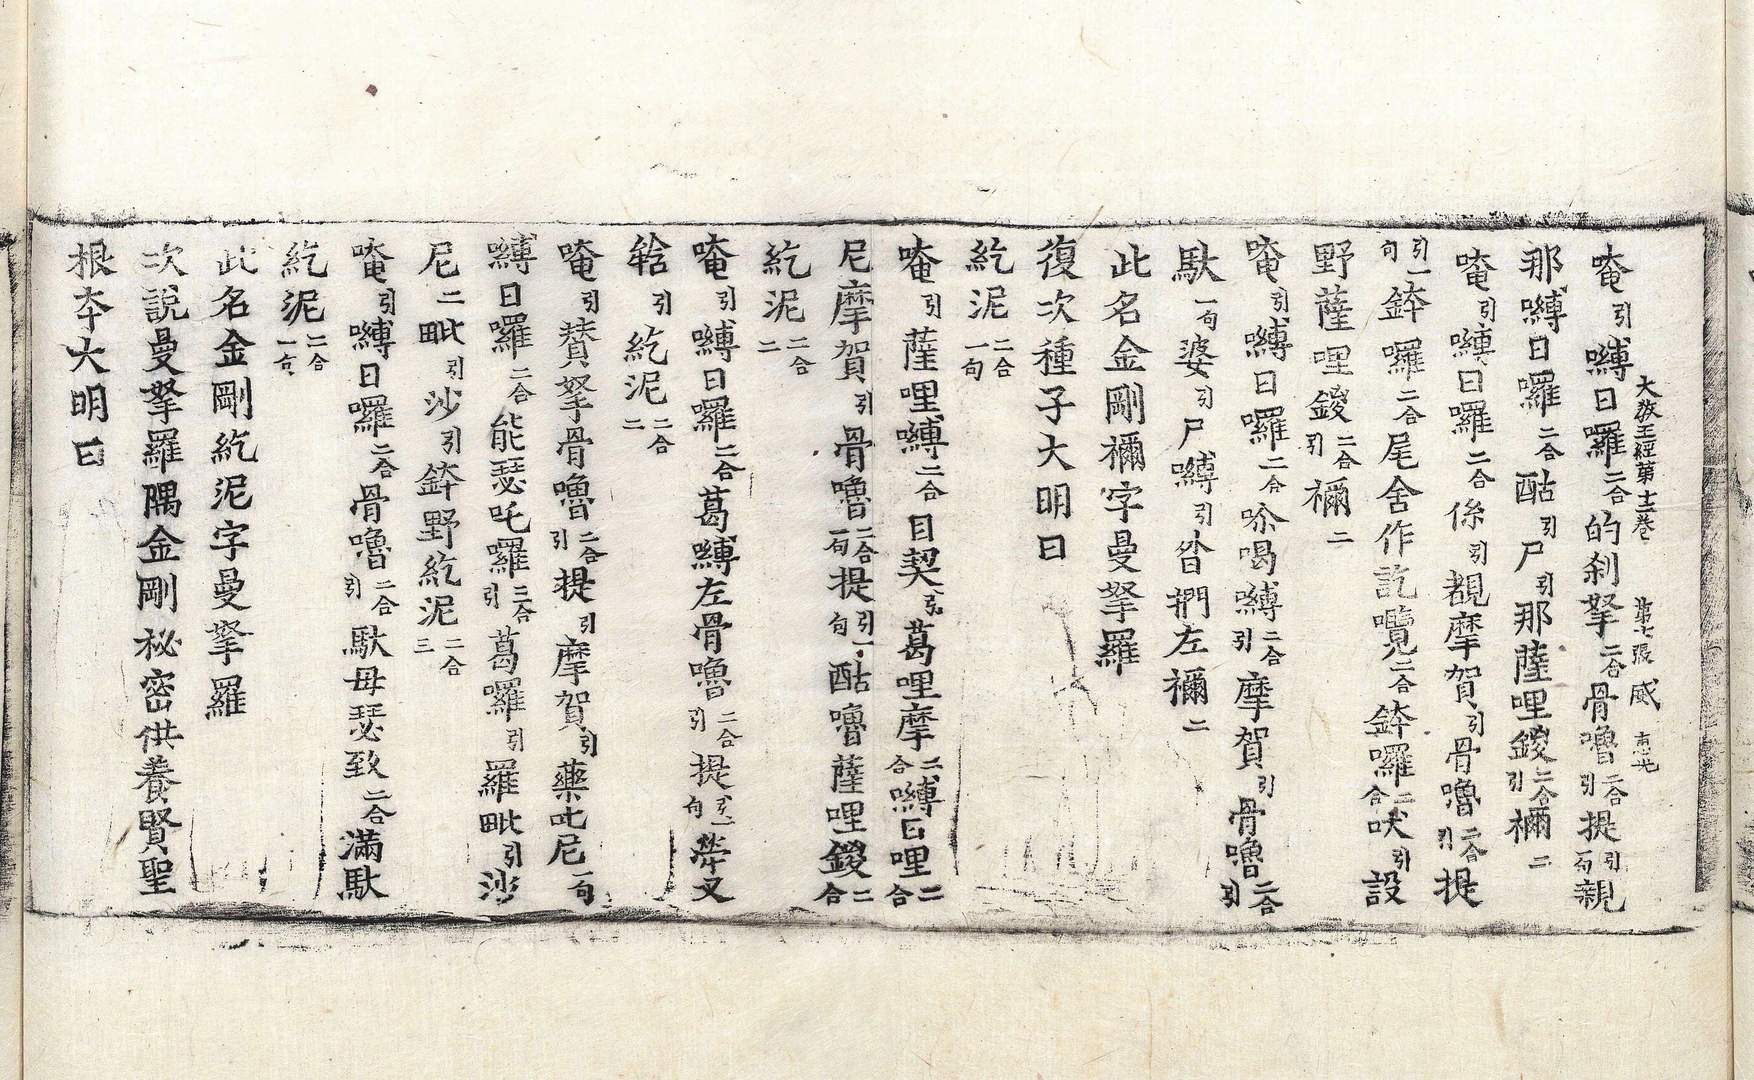 大教王經第十二卷 第七張 威
唵引嚩日囉二合的剎拏二合骨嚕二合引提引一句親
那嚩日囉二合酤引尸引那薩哩鍐二合引禰二
唵引嚩日囉二合係引覩摩賀引骨嚕二合引提
引一句鉢囉二合尾舍作訖囕二合鉢囉二合吠引設
野薩哩鍐二合引禰二
唵引嚩日囉二合喻喝嚩二合引摩賀引骨嚕二合引
馱一句婆引尸嚩引沓捫左禰二
此名金剛禰字曼拏羅
復次種子大明曰
紇泥二合一句
唵引薩哩嚩二合目契引葛哩摩二合嚩日哩二合
尼摩賀引骨嚕二合一句提引一句酤嚕薩哩鍐二合
紇泥二合二
唵引嚩日囉二合葛嚩左骨嚕二合引提引一句犖叉
𤚥引紇泥二合二
唵引贊拏骨嚕二合引提引摩賀引藥叱尼一句
嚩日囉二合能瑟吒囉三合引葛囉引羅毗引沙
尼二毗引沙引鉢野紇泥二合三
唵引嚩日囉二合骨嚕二合引馱毋瑟致二合滿馱
紇泥二合一句
此名金剛紇泥字曼拏羅
次說曼拏羅隅金剛祕密供養賢聖
根本大明曰